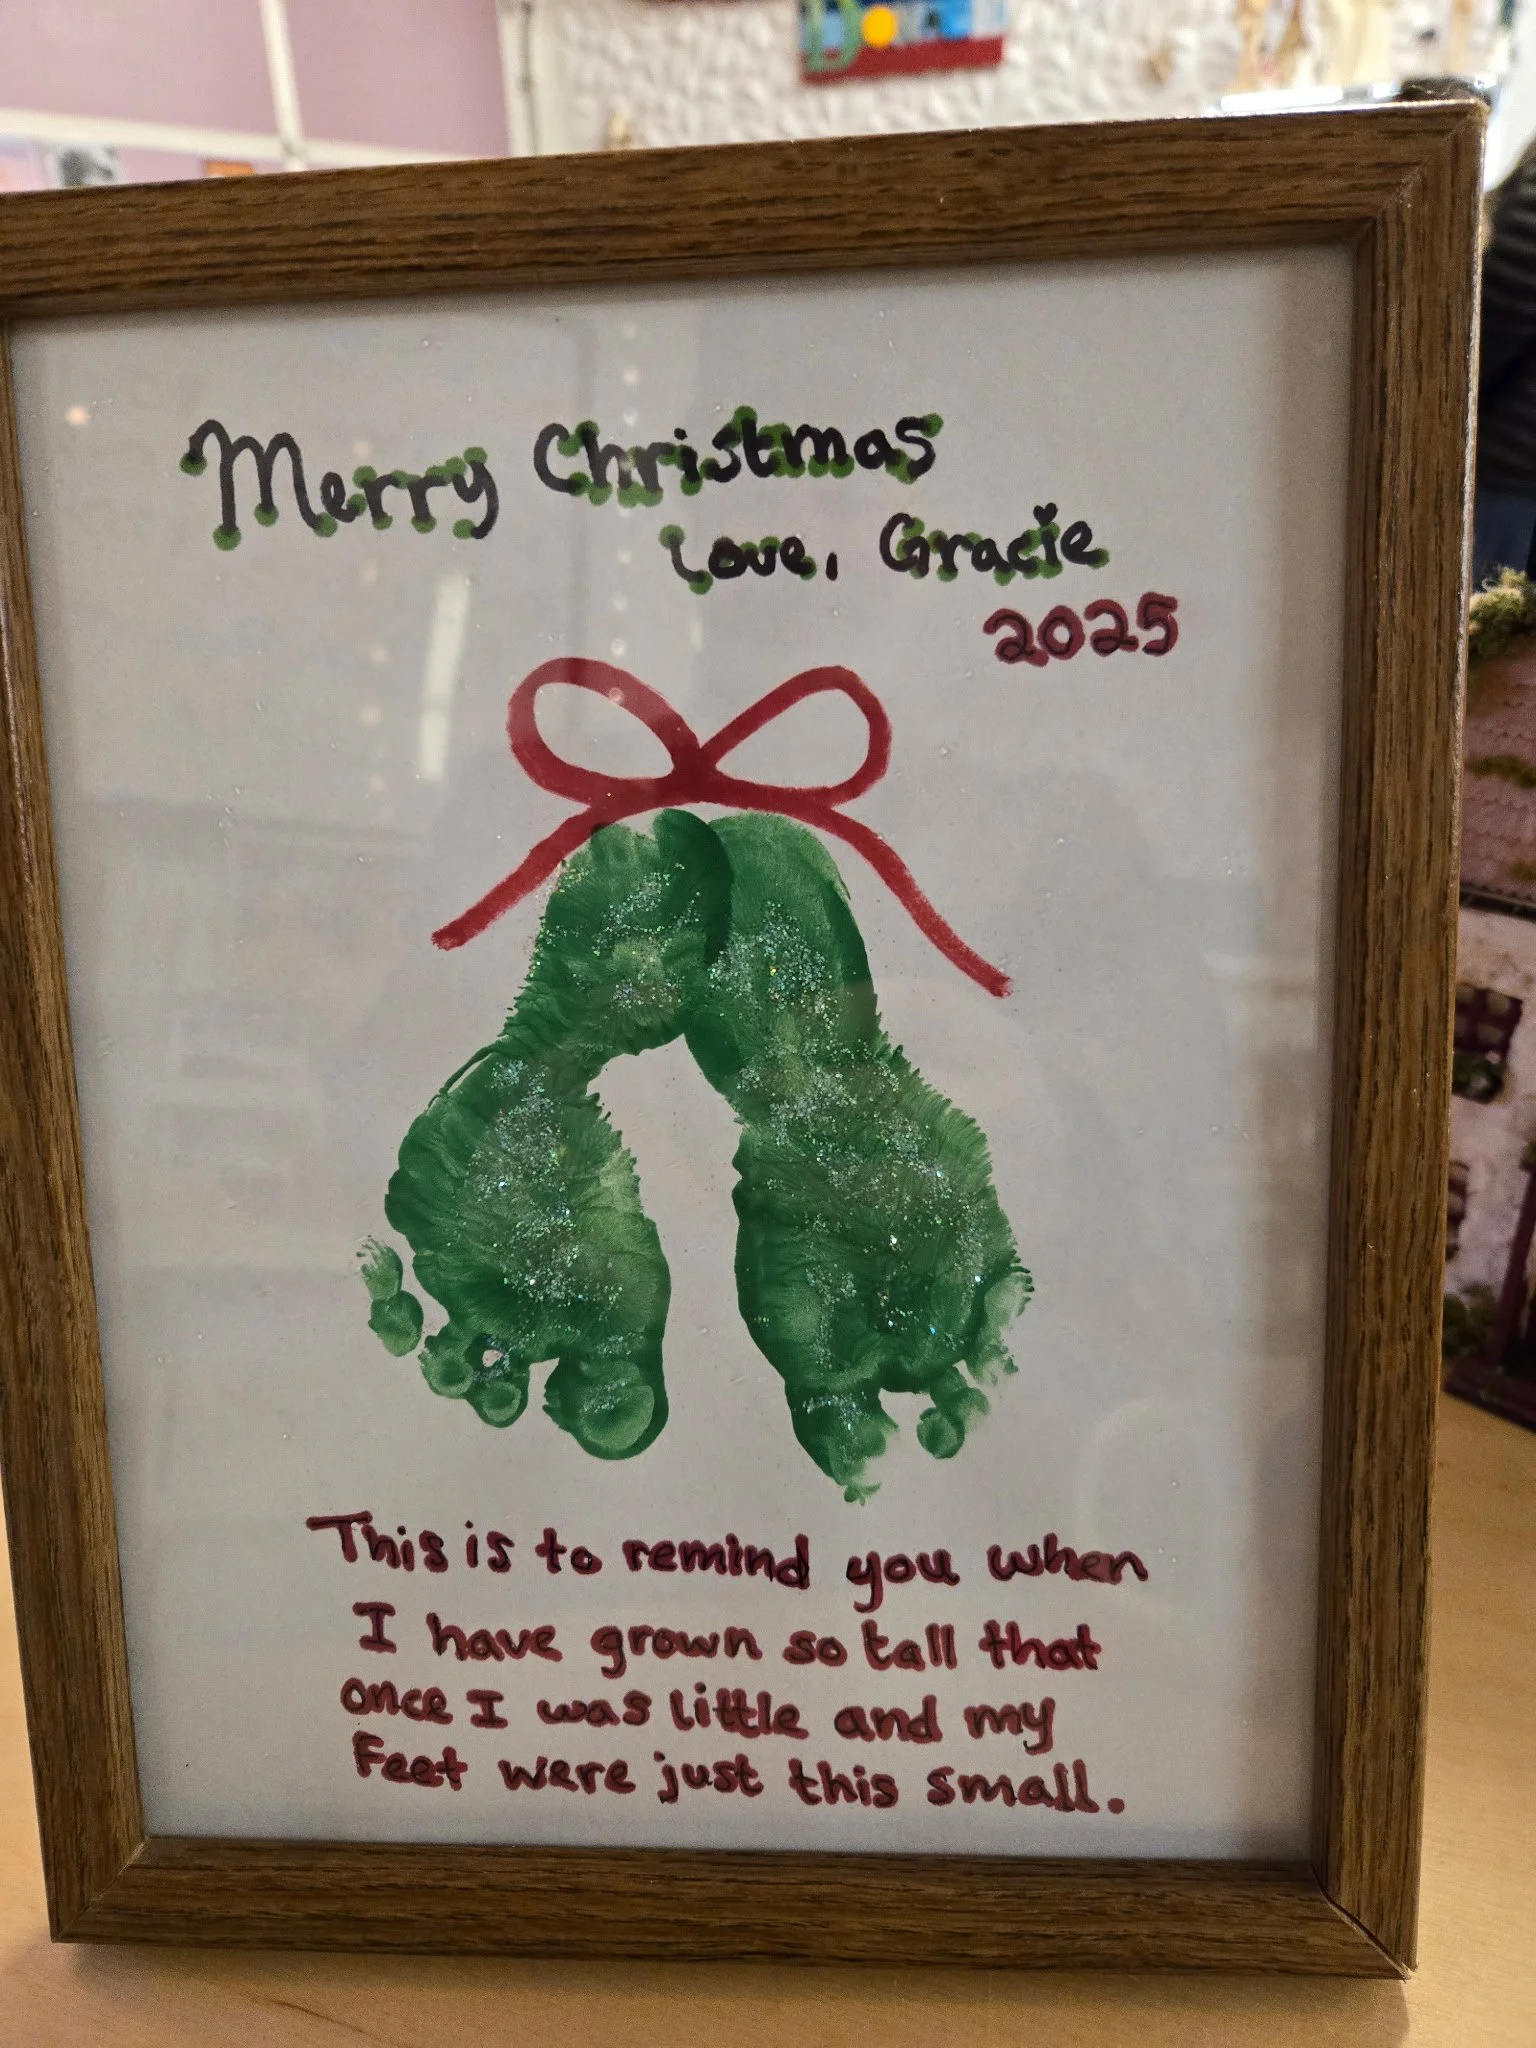 Merry Christmas
Love, Gracie
2025
This is to remind you when
I have grown so tall that
once I was little and my
Feet were just this small.